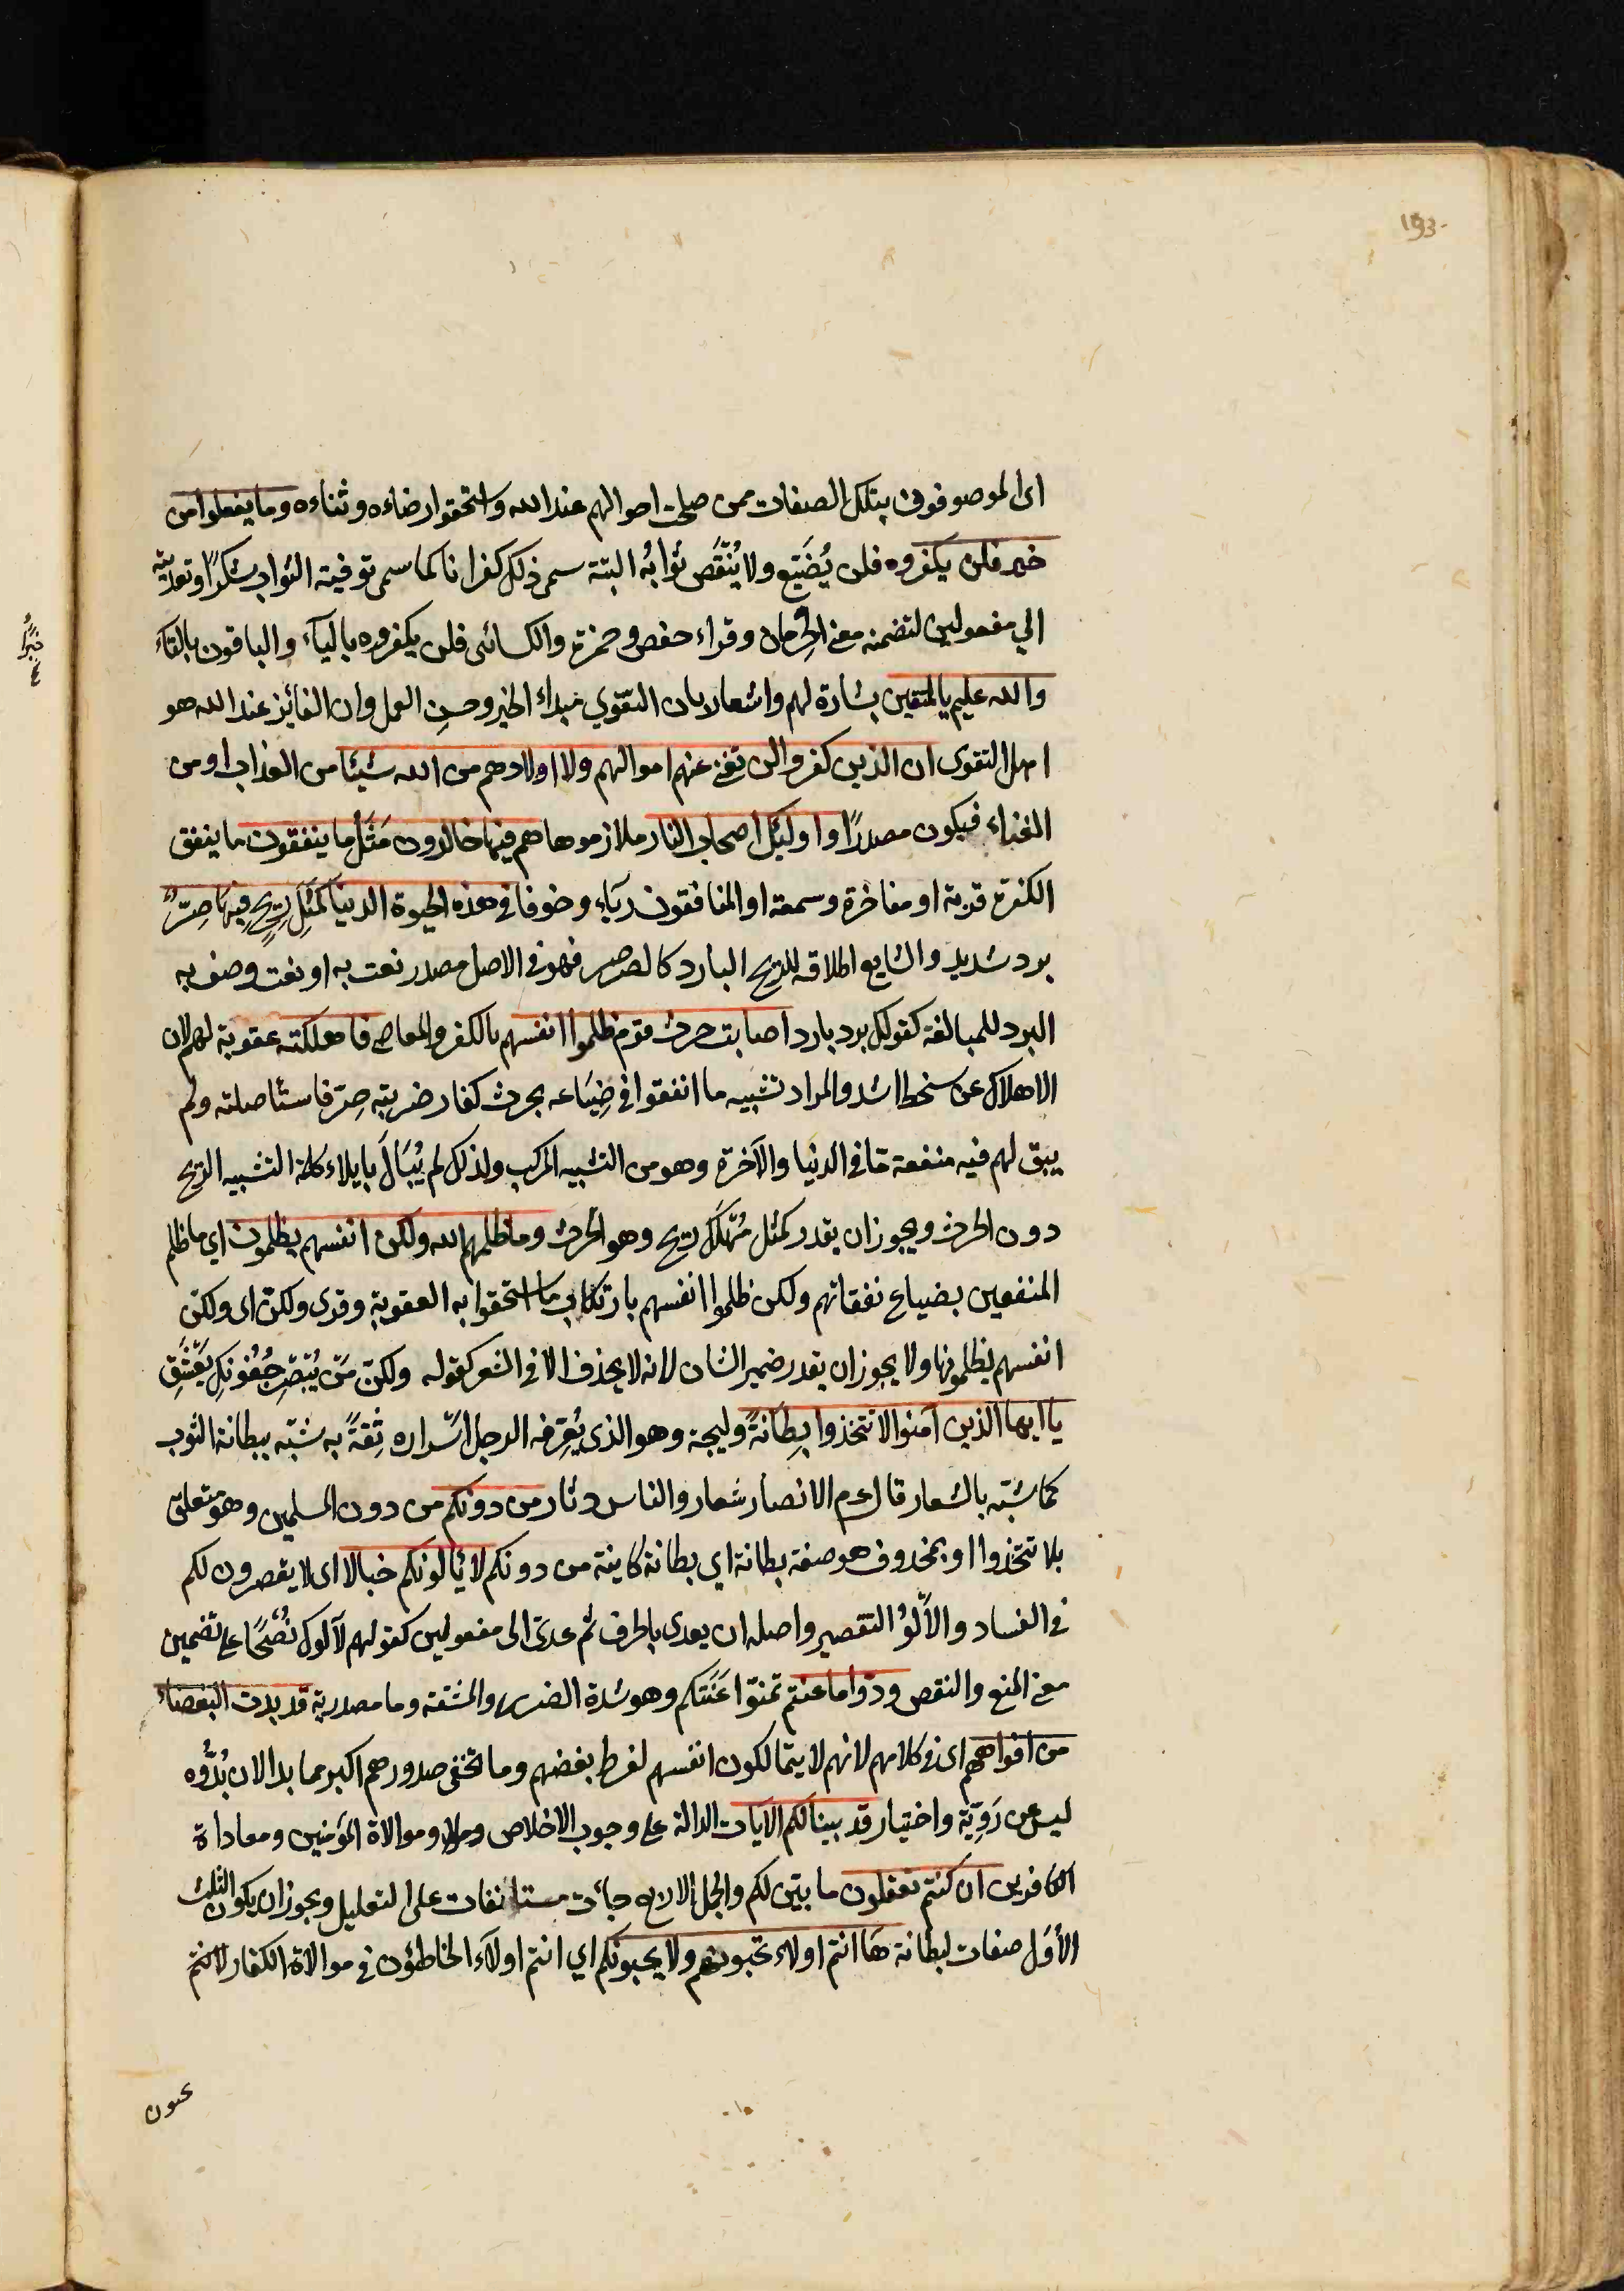 193
اى الموصوفون بتلك الصفات ممن صلحت احوالهم عند الله واستحقوا رضاءه وثناءه وما يفعلوا من
خير فلن يكفروه فلن يُضَيّع ولا يُنْقَص ثوابُه البتة سمى ذلك كفرانا كما سمى توفية الثواب شكرًا وتعديته
الي مفعولين لتضمنه معنى الحِرمان وقراء حفص وحمزة والكسائى فلن يكفروه بالياء والباقون بالتاء
والله عليم بالمتقين بشارة لهم واشعار بان التقوي مبداء الخير وحسن العمل وان الفائز عند الله هو
اهل التقوى ان الذين كفروا لن تغنى عنهم اموالهم ولا اولادهم من الله شيئا من العذاب او من
الغناء فيكون مصدرًا واولئك اصحاب النار ملازموها هم فيها خالدون مَثَل ما ينفقون ما ينفق
الكفرة قربة او مفاخرة وسمعة او المنافقون رياء وخوفا في هذه الحيوة الدنيا كمَثَلِ رِيحٍ فيها صِرٌّ
برد شديد والشايع اطلاقه للريح البارد كالصرصر فهو في الاصل مصدر نعت به او نعت وصف به
البرد للمبالغة كقولك برد بارد اصابت حرث قوم ظلموا انفسهم بالكفر والمعاصى فاهلكته عقوبة لهم لان
الاهلاك عن سخط اشد والمراد تشبيه ما انفقوا في ضِيَاعه بحرث كفار ضربته صِرّ فاستاصلته ولم
يبق لهم فيه منفعة مّا في الدنيا والآخرة وهو من التشبيه المركب ولذلك لم يُبَالَ بايلاء كلمة التشبيه الريح
دون الحرث ويجوز ان يقدر كمثل مُهْلَك ريح وهو الحرث وما ظلمهم الله ولكن انفسهم يظلمون اي ما ظلم
المنفقين بضياع نفقاتهم ولكن ظلموا انفسهم بارتكاب ما استحقوا به العقوبة وقرى ولكنّ اى ولكنّ
انفسهم يظلمونها ولا يجوز ان يقدر ضمير الشان لانه لا يحذف الا في الشعر كقوله ولكنّ مَن يُبْصِر جُفُونَكِ يَعْشَقِ
يا ايها الذين آمنوا لا تتخذوا بِطَانَةً وليجة وهو الذى يُعَرِّفه الرجل اسْراره ثِقَةً به شبّه ببطانة الثوب
كما شبّه بالشعار قال عم الانصار شعار والناس دثار من دونكم من دون المسلمين وهو متعلق
بلا تتخذوا او بمحذوف هو صفة بطانة اي بطانة كاينة من دونكم لا يألونكم خبالا اى لا يقصرون لكم
في الفساد والأَلْوُ التقصير واصله ان يعدى بالحرف ثم عدى الى مفعولين كقولهم لا آلوك نُصْحًا على تضمين
معنى المنع والنقص ودّوا ما عنتم تمنّوا عَنَتَكم وهو شدة الضرر والمشقة وما مصدرية قد بدت البغضاء
من افواههم اى في كلامهم لانهم لا يتمالكون انفسهم لفرط بغضهم وما تخفى صدورهم اكبر مما بدا لان بُدُوَّه
ليس عن رَوِيّة واختيار قد بينا لكم الآيات الدالة على وجوب الاخلاص وموالاة المؤمنين ومعاداة
الكافرين ان كنتم تعقلون ما بيّن لكم والجمل الاربع جاءت مستانفات على التعليل ويجوز ان يكون الثلث
الأُوَل صفات لبطانة هَا انتم اولاء تحبونهم ولا يحبونكم اي انتم اولاء الخاطئون في موالاة الكفار لانتم